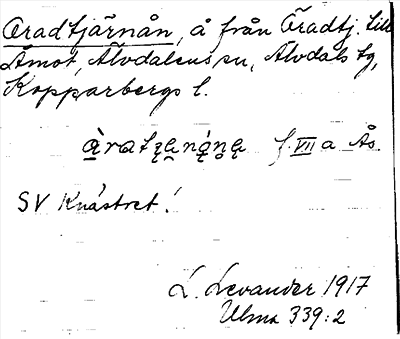 Oradtjärnån, å från Oradtj. till
Åmot, Älvdalens sn, Älvdals tg,
Kopparbergs l.
f. VII a Ås.
SV Knåstret!
L. Levander 1917
Ulma 339:2